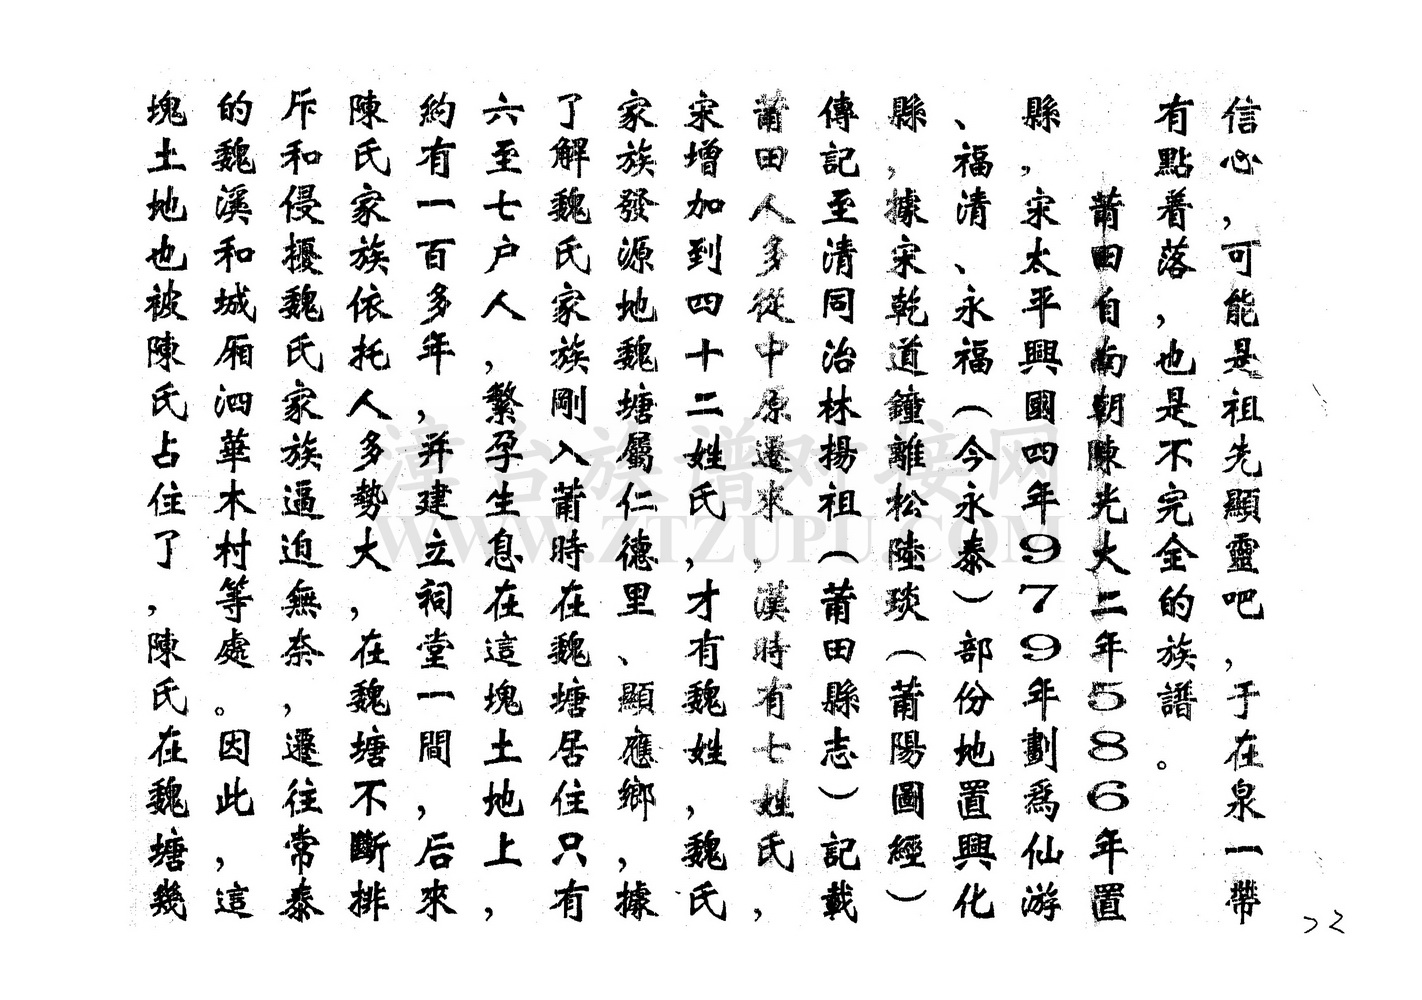 信心，可能是祖先顯靈吧，于在泉一帶
有點着落，也是不完全的族譜。
莆田自南朝陳光大二年586年置
縣，宋太平興國四年979年劃爲仙游
、福清、永福（今永泰）部份地置興化
縣，據宋乾道鐘離松陸琰（莆陽圖經）
傳記至清同治林揚祖（莆田縣志）記載
莆田人多從中原遷來，漢時有七姓氏，
宋增加到四十二姓氏，才有魏姓，魏氏
家族發源地魏塘屬仁德里、顯應鄉，據
了解魏氏家族剛入莆時在魏塘居住只有
六至七户人，繁孕生息在這塊土地上，
約有一百多年，并建立祠堂一間，后來
陳氏家族依托人多勢大，在魏塘不斷排
斥和侵擾魏氏家族逼迫無奈，遷往常泰
的魏溪和城厢泗華木村等處。因此，這
塊土地也被陳氏占住了，陳氏在魏塘幾
22
淳台族谱对接网
WWW.ZTZUPU.COM